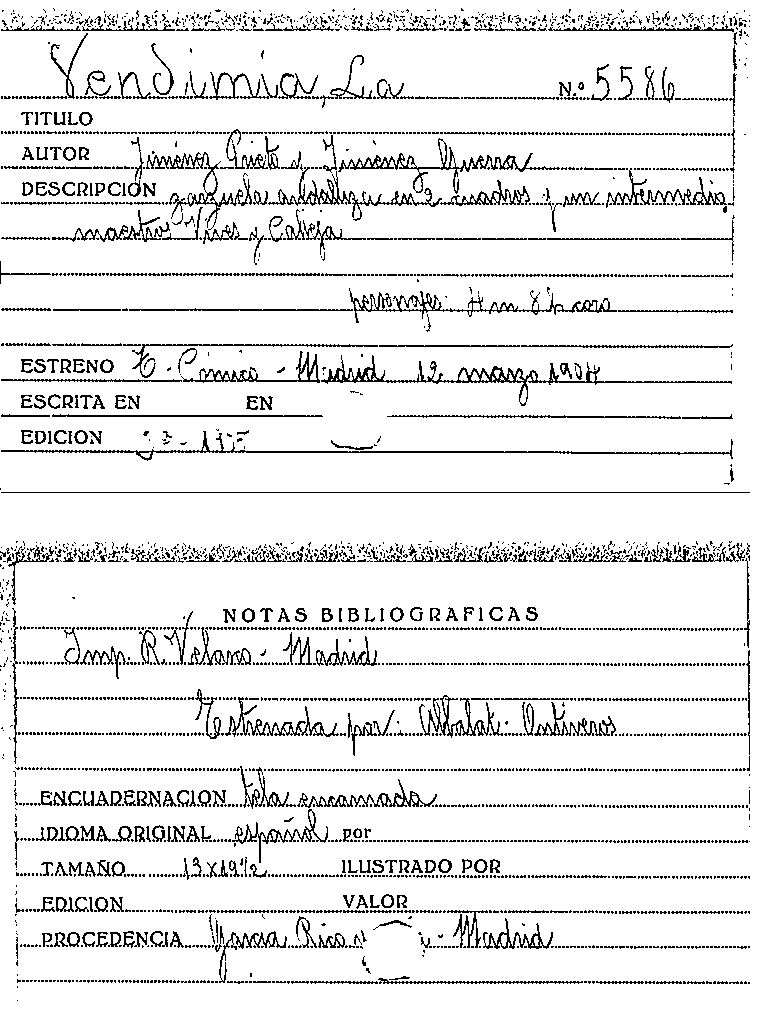 Vendimia, La N.º 5586
TITULO
AUTOR Jiménez Prieto y Jiménez Guerra
DESCRIPCION zarzuela andaluza en 2 cuadros y un intermedio,
maestros Vives y Calleja
personajes: 4 m 8 h coro
ESTRENO T. Cómico - Madrid 12 marzo 1904
ESCRITA EN EN
EDICION
NOTAS BIBLIOGRAFICAS
Imp. R. Velasco - Madrid
Estrenada por: Albalat - Ontiveros
ENCUADERNACION tela encarnada
IDIOMA ORIGINAL español por
TAMAÑO 13 x 19 1/2 ILUSTRADO POR
EDICION VALOR
PROCEDENCIA García Rico y - Madrid